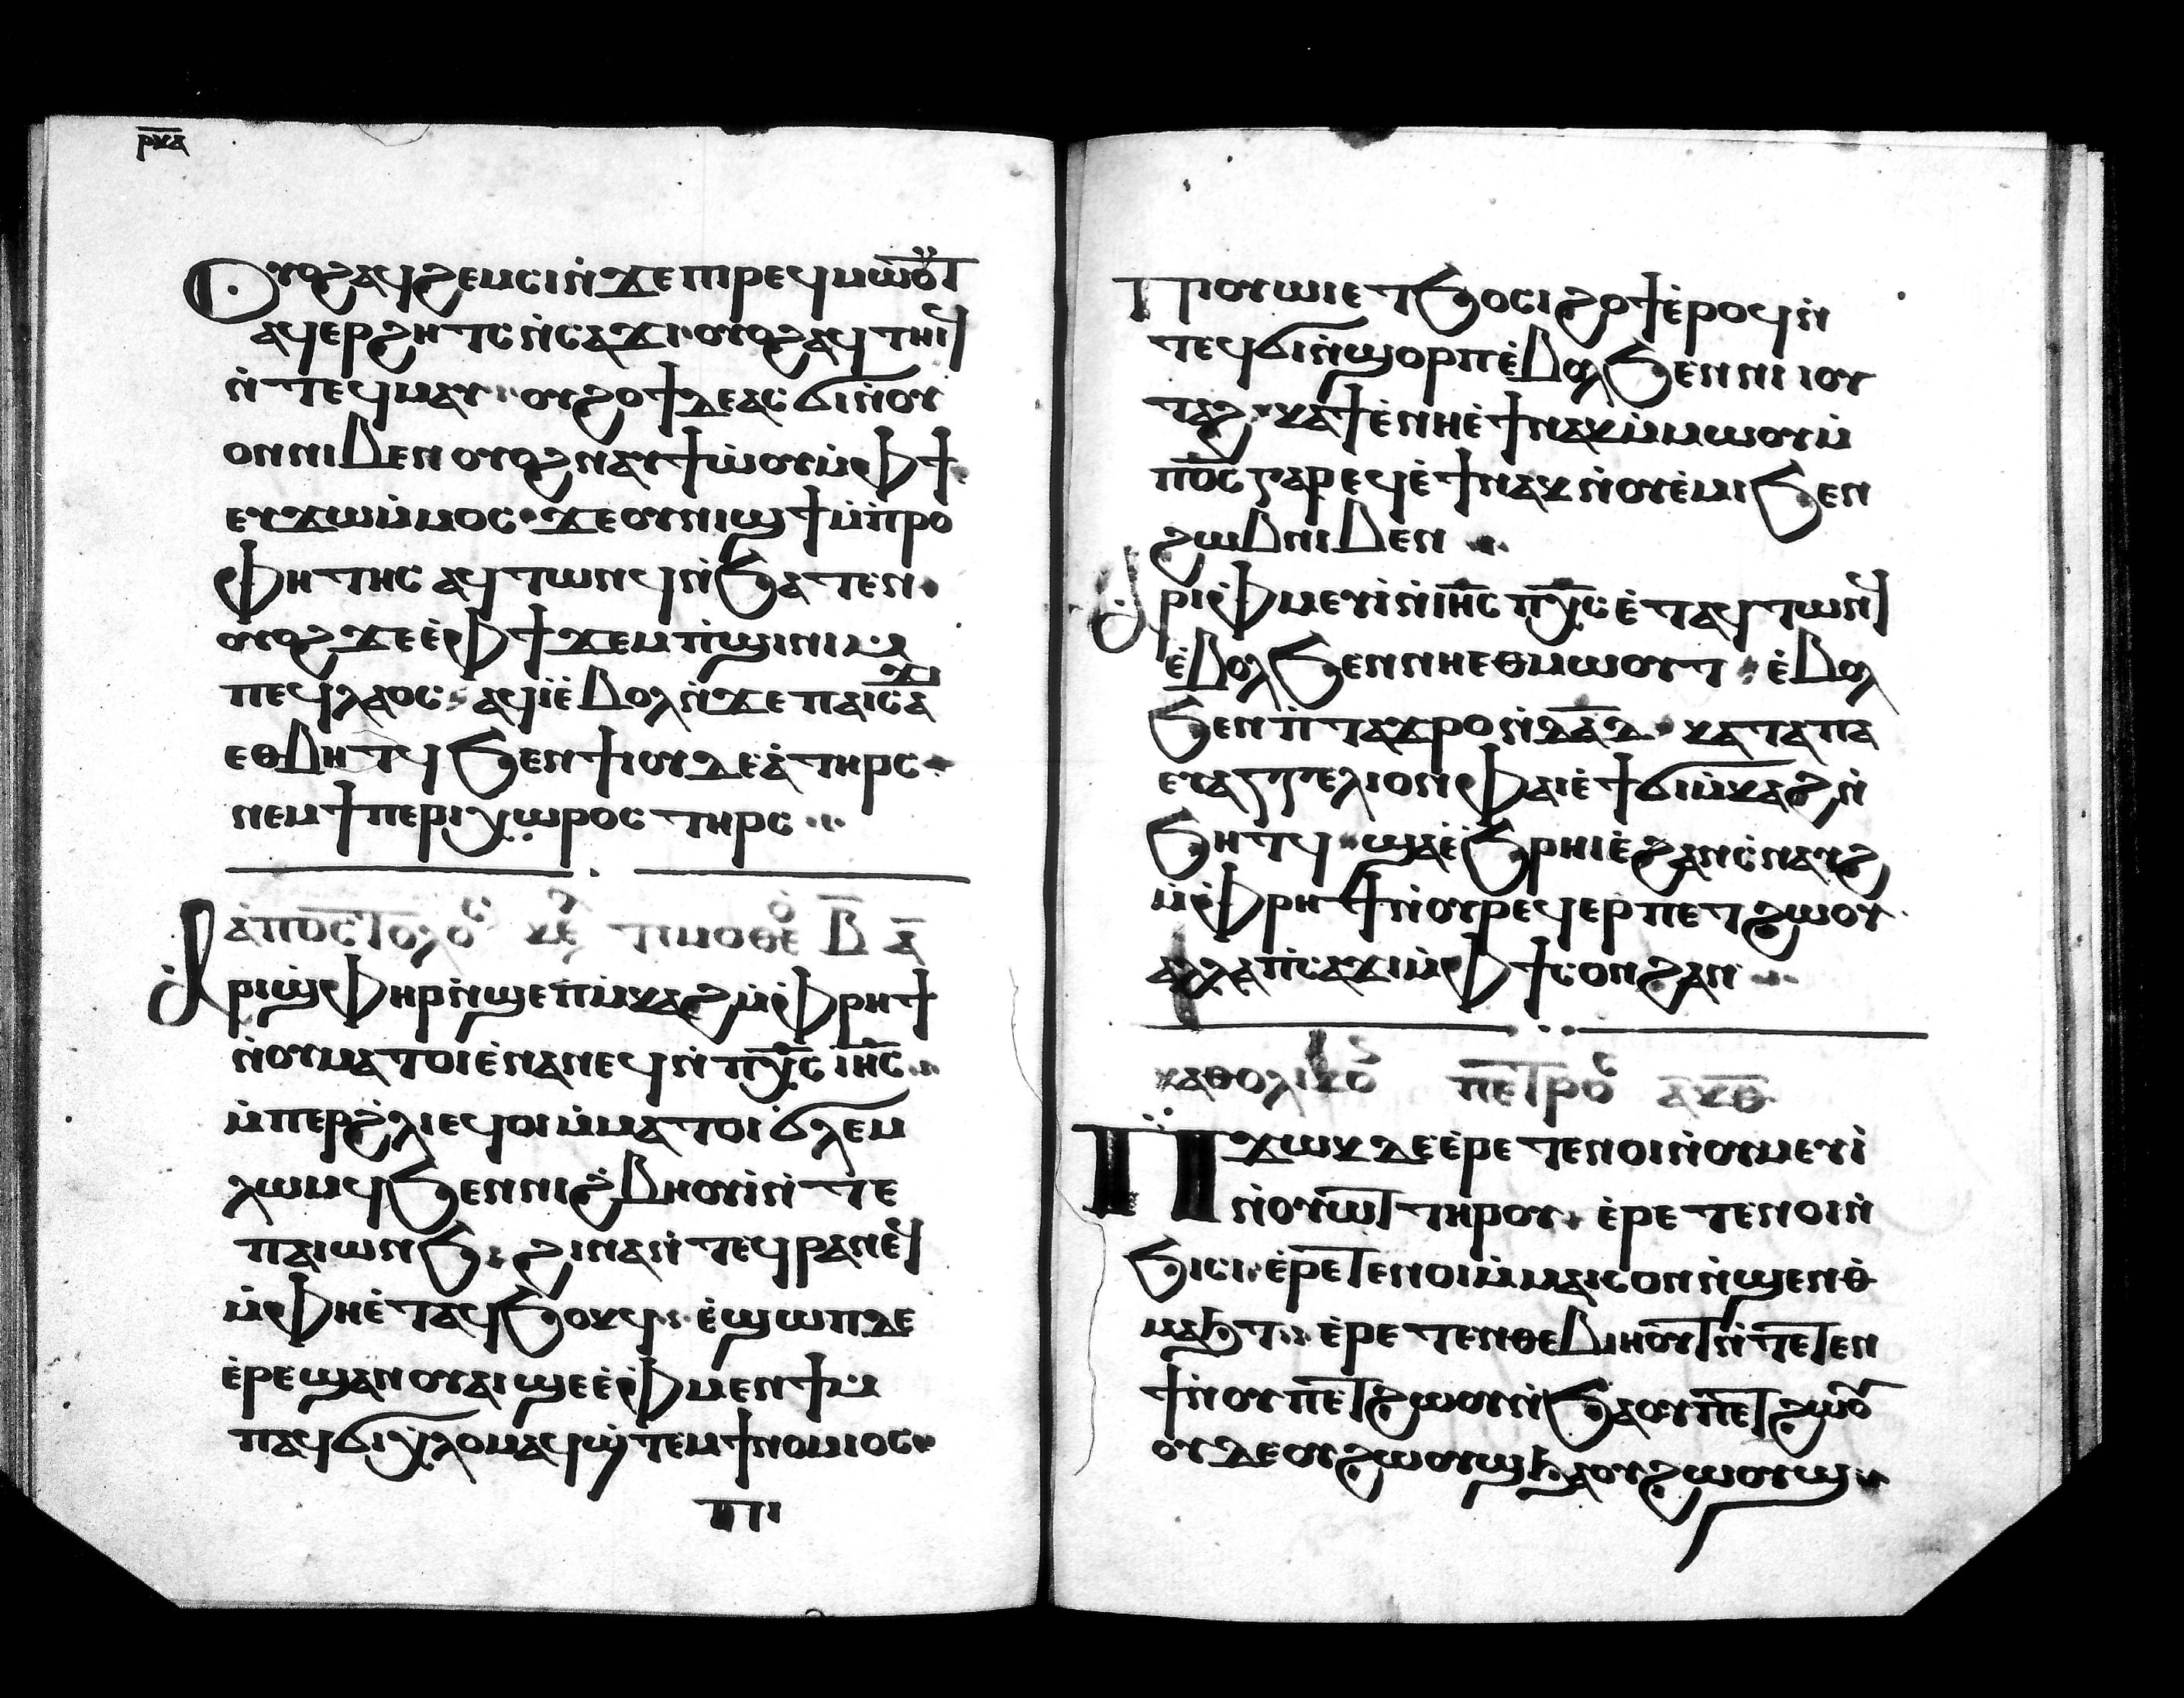 ⲣⲕⲁ
Ⲟⲩⲟϩ ⲁϥϩⲉⲙⲥⲓ ⲛ̀ϫⲉ ⲡⲓⲣⲉϥⲙⲱⲟⲩⲧ
ⲁϥⲉⲣϩⲏⲧⲥ ⲛ̀ⲥⲁϫⲓ ⲟⲩⲟϩ ⲁϥⲧⲏⲓϥ
ⲛ̀ⲧⲉϥⲙⲁⲩ ⲟⲩϩⲟϯ ⲇⲉ ⲁⲥϭⲓ ⲛ̀ⲟⲩ
ⲟⲛ ⲛⲓⲃⲉⲛ ⲟⲩⲟϩ ⲛⲁⲩϯⲱ̀ⲟⲩ ⲙ̀ⲫϯ
ⲉⲩϫⲱ ⲙ̀ⲙⲟⲥ ϫⲉ ⲟⲩⲛⲓϣϯ ⲙ̀ⲡ̀ⲣⲟ
ⲫⲏⲧⲏⲥ ⲁϥⲧⲱⲛϥ ⲛ̀ϧⲁⲧⲉⲛ
ⲟⲩⲟϩ ϫⲉ ⲉ̀ⲫϯ ϫⲉⲙⲡ̀ϣⲓⲛⲓ ⲙ̀
ⲡⲉϥⲗⲁⲟⲥ ⲁϥⲓ̀ ⲉ̀ⲃⲟⲗ ⲛ̀ϫⲉ ⲡⲁⲓⲥⲁϫⲓ
ⲉⲑⲃⲏⲧϥ ϧⲉⲛ ϯⲓⲟⲩⲇⲉⲁ̀ ⲧⲏⲣⲥ
ⲛⲉⲙ ϯⲡⲉⲣⲓⲭⲱⲣⲟⲥ ⲧⲏⲣⲥ
ⲁ̀ⲡⲟⲥⲧⲟⲗⲟⲥ ⲕⲉ ⲧⲓⲙⲟⲑⲉ̀ⲟ ⲃ̅ ⲁ̅
Ⲁⲣⲓϣⲫⲏⲣ ⲛ̀ϣⲉⲡ ⲙ̀ⲕⲁϩ ⲙ̀ⲫⲣⲏϯ
ⲛ̀ⲟⲩⲙⲁⲧⲟⲓ ⲉ̀ⲛⲁⲛⲉϥ ⲛ̀ⲡⲭ̅ⲥ ⲓⲏ̅ⲥ
ⲙ̀ⲡⲉⲣϩ̀ⲗⲓ ⲉϥⲟⲓ ⲙ̀ⲙⲁⲧⲟⲓ ϭ̀ⲗⲉⲙ
ⲗⲱⲙϥ ϧⲉⲛ ⲛⲓϩ̀ⲃⲏⲟⲩⲓ̀ ⲛ̀ⲧⲉ
ⲡⲁⲓⲱⲛϧ ϩⲓⲛⲁ ⲛ̀ⲧⲉϥⲣⲁⲛⲉϥ
ⲙ̀ⲫⲏ ⲉ̀ⲧⲁϥϧⲟⲕϥ ⲉ̀ϣⲱⲡ ⲇⲉ
ⲉ̀ⲣⲉϣⲁⲛ ⲟⲩⲁⲓ ϣⲉ ⲉ̀ⲫⲙⲉⲛϯ ⲙ̀
ⲡⲁϥϭⲓⲭ̀ⲗⲟⲙ ⲁϥϣ̀ⲧⲉⲙϯ ⲛⲟⲙⲓⲟⲥ
ⲡⲓ
Ⲡⲓⲟⲩⲱⲓⲉ ⲧϧⲟⲥⲓ ϩⲟϯ ⲉ̀ⲣⲟϥ ⲛ̀
ⲧⲉϥϭⲓ ⲛ̀ϣⲟⲣⲡ ⲉ̀ⲃⲟⲗ ϧⲉⲛ ⲛⲓ ⲓⲟⲩ
ⲧⲁϩ ⲕⲁϯ ⲉ̀ⲛⲏ ⲉ̀ϯⲛⲁⲕ ⲙ̀ⲙⲱⲟⲩ ⲙ̀
ⲡⲟ̅ⲥ ⲅⲁⲣ ⲉϥⲉ̀ϯ ⲛⲁⲕ ⲛ̀ⲟⲩⲉ̀ⲙⲓ ϧⲉⲛ
ϩⲱⲃ ⲛⲓⲃⲉⲛ
Ⲁⲣⲓⲫⲙⲉⲩⲓ̀ ⲛ̀ⲓⲏ̅ⲥ ⲡⲭ̅ⲥ ⲉ̀ⲧⲁϥⲧⲱⲛϥ
ⲉ̀ⲃⲟⲗ ϧⲉⲛ ⲛⲏⲉⲑⲙⲱⲟⲩⲧ ⲉ̀ⲃⲟⲗ
ϧⲉⲛ ⲡ̀ⲧⲁϫⲣⲟ ⲛ̀ⲇⲁ̅ⲇ ⲕⲁⲧⲁ ⲡⲁ
ⲉⲩⲁⲅⲅⲉⲗⲓⲟⲛ ⲫⲁⲓ ⲉ̀ϯϭⲓ ⲙ̀ⲕⲁϩ ⲛ̀
ϧⲏⲧϥ ϣⲁ ⲉ̀ϧⲣⲏⲓ ⲉ̀ϩⲁⲛⲥ̀ⲛⲁⲩϩ
ⲙ̀ⲫⲣⲏϯ ⲛ̀ⲟⲩⲣⲉϥⲉⲣⲡⲉⲧϩⲱⲟⲩ
ⲁⲗⲗⲁ ⲡ̀ⲥⲁϫⲓ ⲙ̀ⲫϯ ⲥⲟⲛϩ ⲁⲛ
ⲕⲁⲑⲟⲗⲓⲕⲟ ⲡⲉⲧⲣⲟⲥ ⲁ̅ⲕ̅ⲑ̅
Ⲡϫⲱⲕ ⲇⲉ ⲉ̀ⲣⲉⲧⲉⲛⲟⲓ ⲛ̀ⲟⲩⲙⲉⲩⲓ̀
ⲛ̀ⲟⲩⲱⲧ ⲧⲏⲣⲟⲩ ⲉ̀ⲣⲉⲧⲉⲛⲟⲓ ⲛ̀
ϧⲓⲥⲓ ⲉ̀ⲣⲉⲧⲉⲛⲟⲓ ⲙ̀ⲙⲁⲓⲥⲟⲛ ⲛ̀ϣⲉⲛⲑ̀
ⲙⲁϧⲧ ⲉ̀ⲣⲉⲧⲉⲛⲑⲉⲃⲓⲏⲟⲩⲧ ⲛ̀ⲧⲉⲧⲉⲛ
ϯ ⲛ̀ⲟⲩⲡⲉⲧϩⲱⲟⲩ ⲛ̀ϧⲁ ⲟⲩⲡⲉⲧϩⲱⲟⲩ
ⲟⲩⲇⲉ ⲟⲩϩⲱⲟⲩϣ ϧⲁ ⲟⲩϩⲱⲟⲩϣ